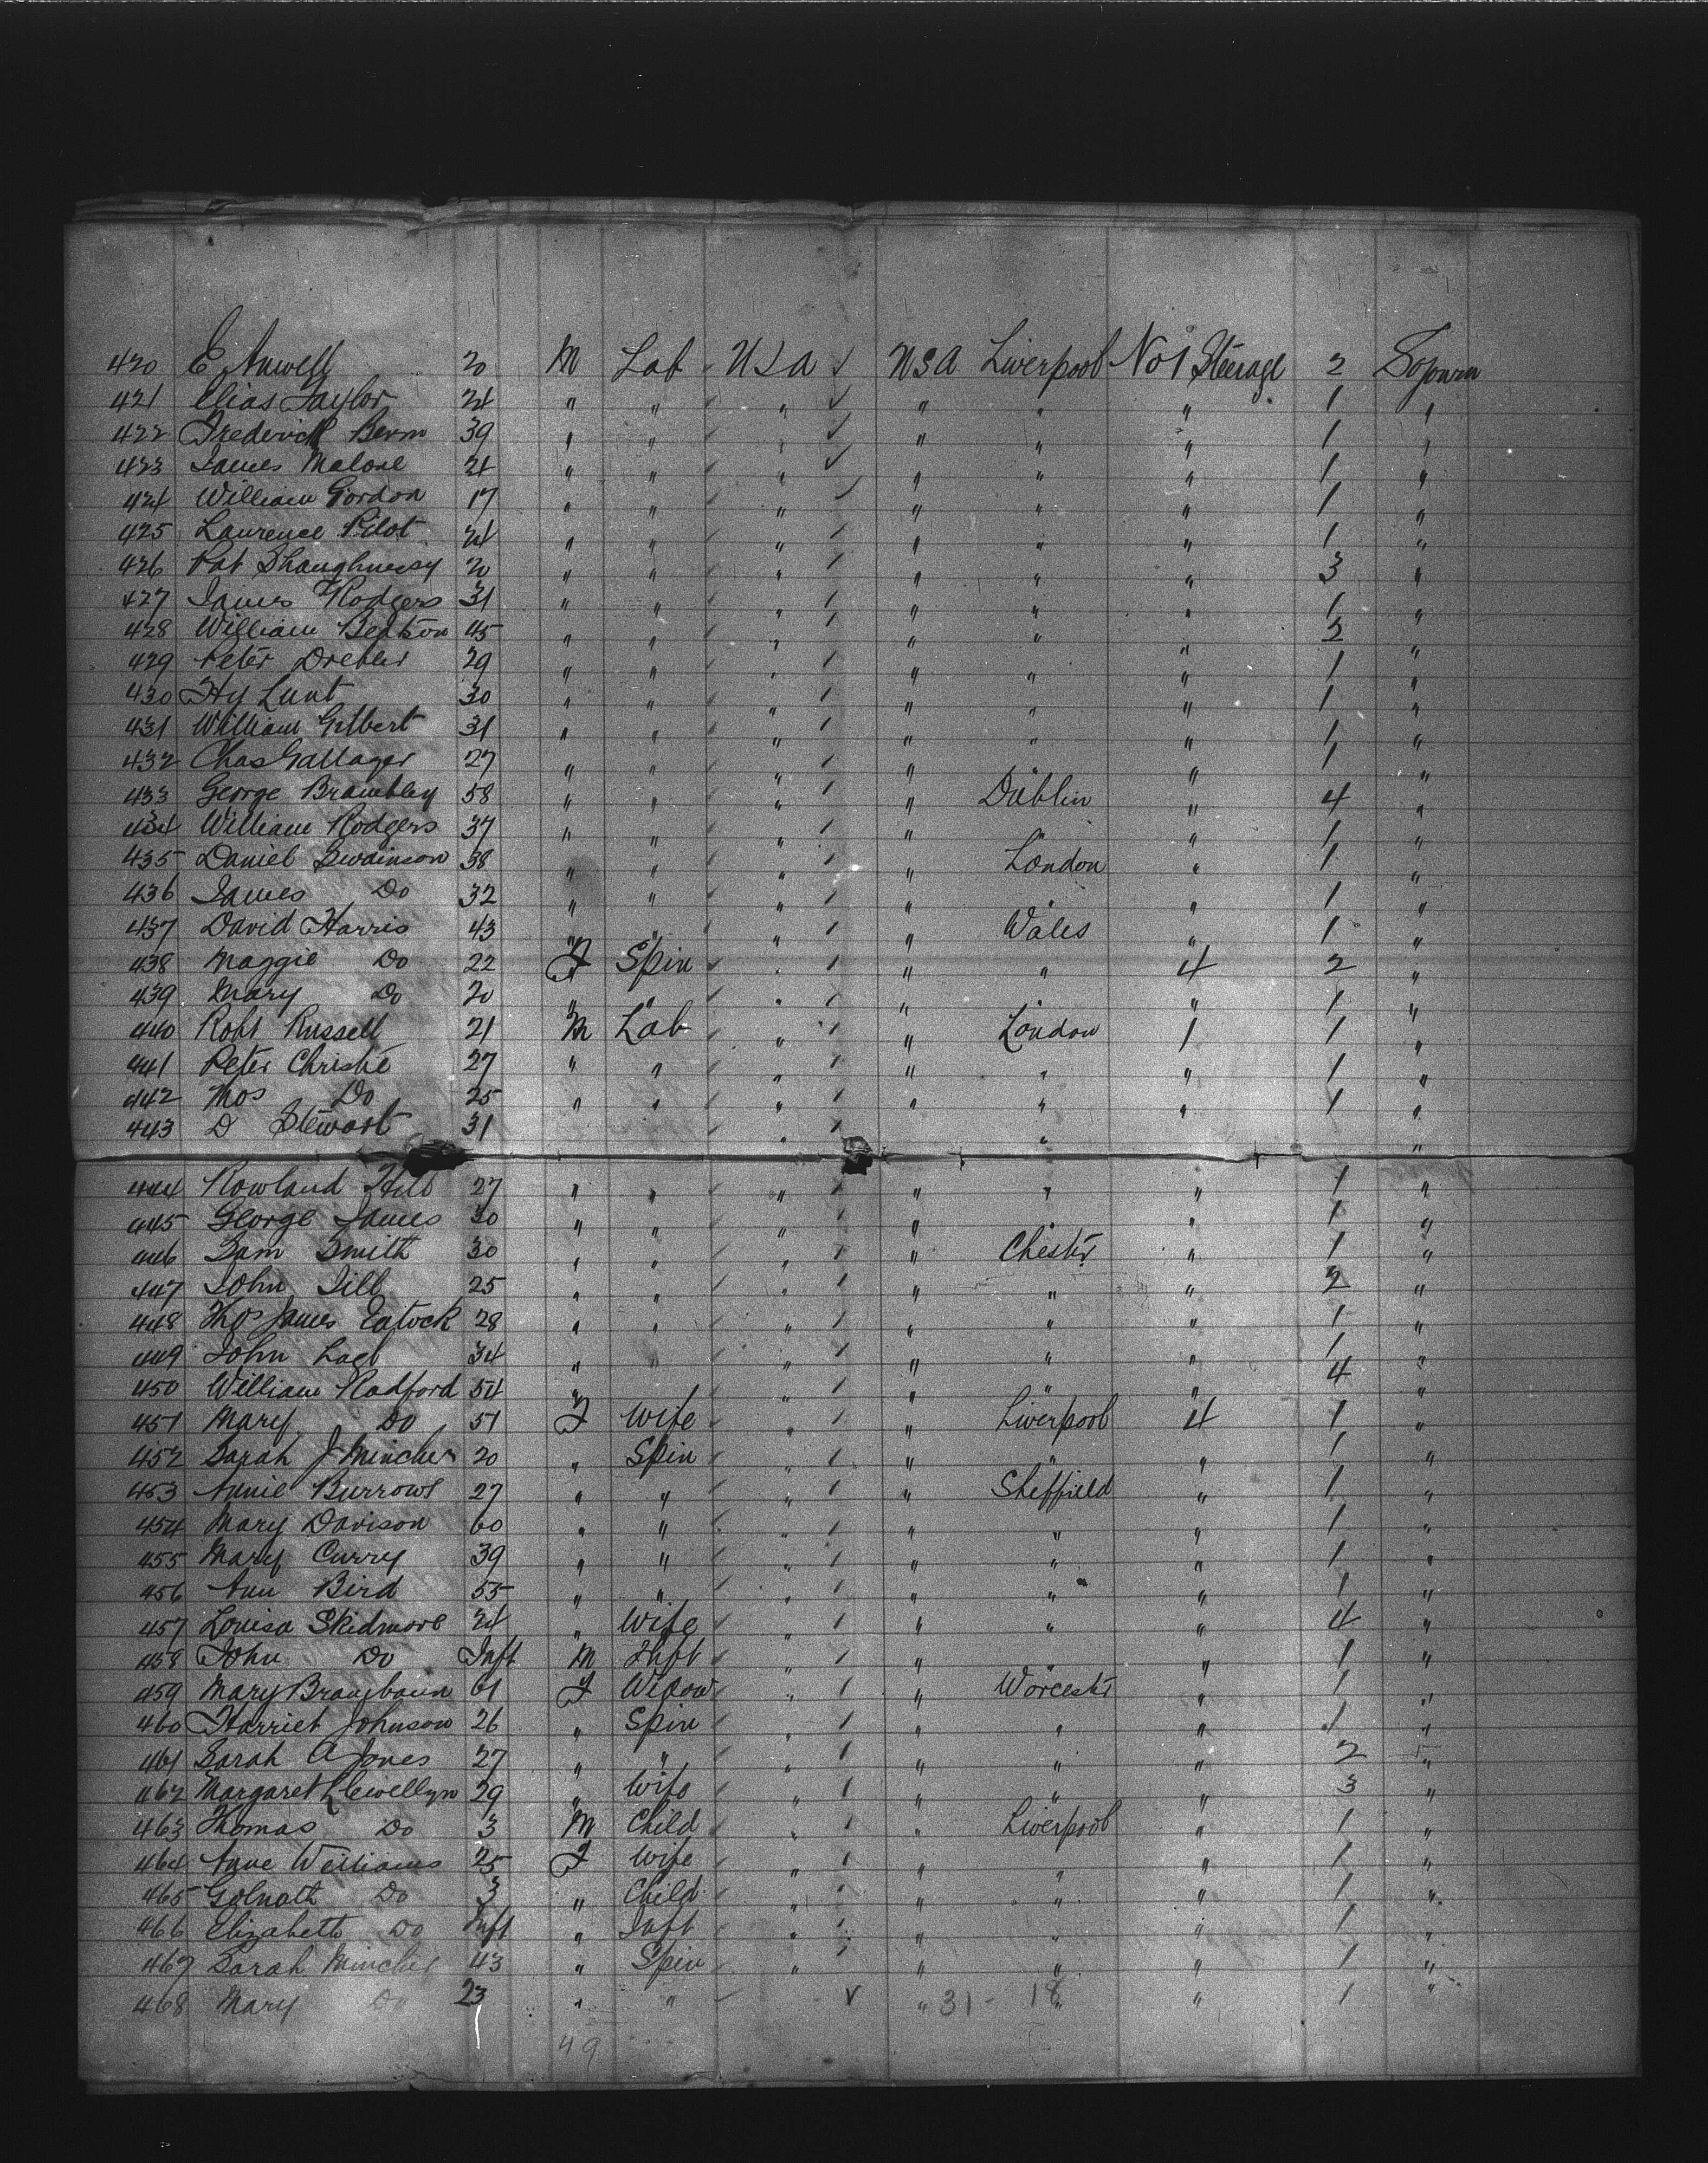 420 E Anwell 20 M Lab USA USA Liverpool No 1 Steerage 2 Sojourn
421 Elias Taylor 24 " " " " " " 1 "
422 Frederick Berm 39 " " " " " " 1 "
423 James Malone 24 " " " " " " 1 "
424 William Gordon 17 " " " " " " 1 "
425 Laurence Pilot 24 " " " " " " 1 "
426 Pat Shaughnessy 20 " " " " " " 3 "
427 James Rodgers 31 " " " " " " 1 "
428 William Beaton 45 " " " " " " 2 "
429 Peter Drebler 29 " " " " " " 1 "
430 Hy Lunt 30 " " " " " " 1 "
431 William Gilbert 31 " " " " " " 1 "
432 Chas Gallager 27 " " " " " 1 "
433 George Brambley 58 " " " " Dublin " 4 "
434 William Rodgers 37 " " " " " " 1 "
435 Daniel Swainson 38 " " " " London " 1 "
436 James Do 32 " " " " " " 1 "
437 David Harris 43 " " " " Wales " 1 "
438 Maggie Do 22 F Spin " " " 4 2 "
439 Mary Do 20 " " " " " " 1 "
440 Robt Russell 21 M Lab " " London 1 1 "
441 Peter Christie 27 " " " " " " 1 "
442 Thos Do 25 " " " " " " 1 "
443 D Stewart 31 " " "
444 Rowland Hill 27 " " " " " " 1 "
445 George James 30 " " " " " " 1 "
446 Sam Smith 30 " " " " Chester " 1 "
447 John Till 25 " " " " " " 2 "
448 Thos James Eatock 28 " " " " " " 1 "
449 John 34 " " " " " " 1 "
450 William Radford 54 " " " " " 4 "
451 Mary Do 51 F Wife " " Liverpool 4 1 "
452 Sarah J Mincher 20 " Spin " " " " 1 "
453 Annie Burrows 27 " " " " Sheffield " 1 "
454 Mary Davison 60 " " " " " " 1 "
455 Mary Curry 39 " " " " " " 1 "
456 Ann Bird 55 " " " " " " 1 "
457 Louisa Skidmore 24 " Wife " " " " 4 "
458 John Do Inft M Inft " " " " 1 "
459 Mary 61 F Widow " " Worcester " 1 "
460 Harriet Johnson 26 " Spin " " " " 1 "
461 Sarah A Jones 27 " " " " " " 2 "
462 Margaret Llewellyn 29 " Wife " " " " 3 "
463 Thomas Do 3 M Child " " Liverpool " 1 "
464 Anne Williams 25 F Wife " " " " 1 "
465 Do 3 " Child " " " " 1 "
466 Elizabeth Do Inft " Inft " " " " 1 "
467 Sarah Mincher 43 " Spin " " " " 1 "
468 Mary Do 23 " " " 31 - 18 " " 1 "
49